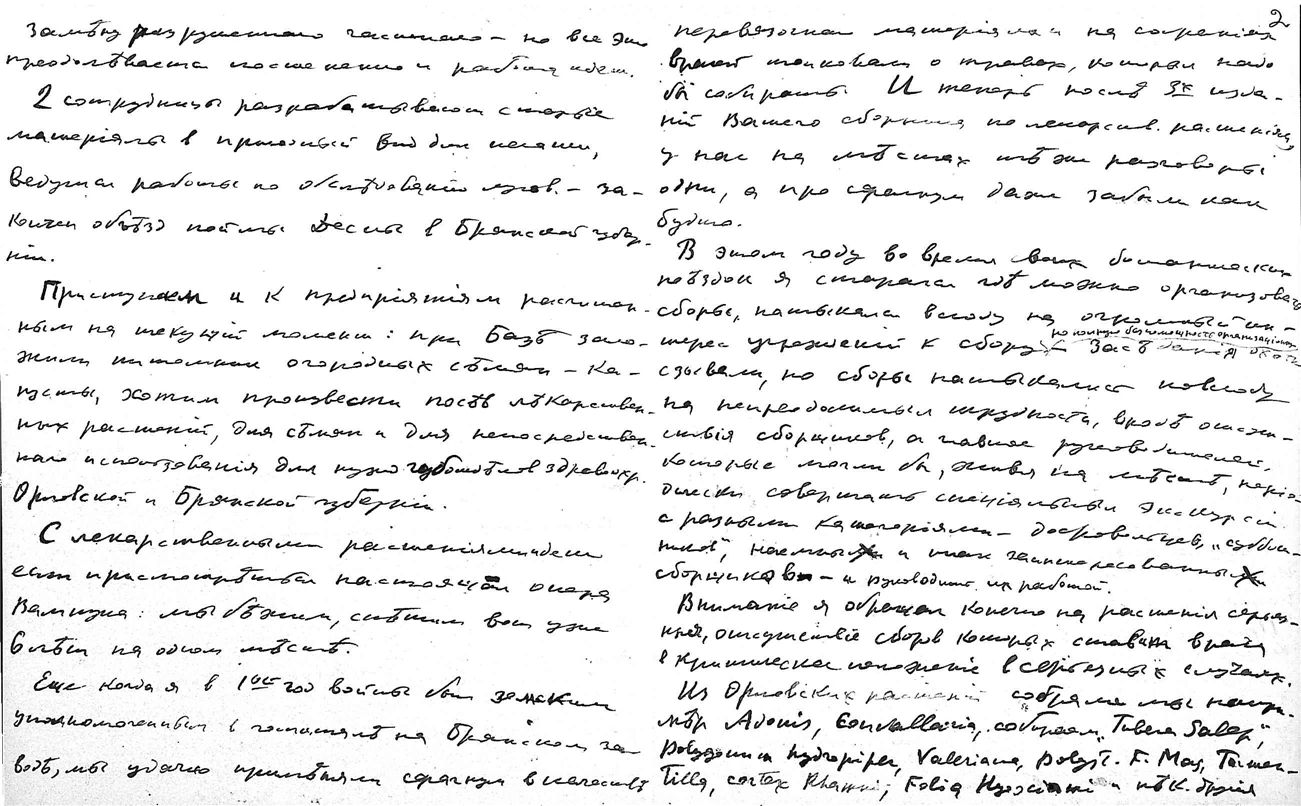 замѣну разрушеннаго часттнаго – но все это
преодолѣвается постепенно и работа идет.
2 сотрудницы разрабатывают старые
матеріалы в пригодный вид для печати,
ведутся работы по обслѣдованію лугов. – за-
кончен объѣзд поймы Десны в Брянской губер-
ніи.
Приступаем и к предпріятіям расчитан-
ным на текущій момент: при Базѣ зало-
жили питомник огородных сѣмян – ка-
пусты, хотим произвести посѣв лѣкарствен-
ных растеній, для сѣмян и для непосредствен-
наго использованія для нужд губотдѣлов здравоохр.
Орловской и Брянской губерніи.
С лекарственными растеніями дѣло
если присмотрѣться настоящая опера
Вампука: мы бѣжим, спѣшим вот уже
6 лѣт на одном мѣстѣ.
Еще когда я в 1ый год войны был земским
уполномоченным в госпиталѣ на Брянском за-
водѣ, мы удачно примѣняли сфагнум в качествѣ
2
перевязочнаго матеріала и на собраніях
врачей толковали о травах, которыя надо
бы собирать. И теперь послѣ 3х изда-
ній Вашего сборника по лекарств. растеніям,
у нас на мѣстах тѣ же разговоры
одни, а про сфагнум даже забыли как
будто.
В этом году во время своих ботанических
поѣздок я старался гдѣ можно организовать
сборы, натыкался всюду на огромный ин-
терес учреждений к сбору
но полную безпомощность организаціонную
Засѣданія охотно
сзывали, но сборы натыкались повсюду
на непреодолимыя трудности, вродѣ отсут-
ствія сборщиков, а главное руководителей,
которые могли бы, живя на мѣстѣ, періо-
дически совершать спеціальныя экскурсіи
с разными категоріями – добровольцев, „суббот-
ников", наемных и иных заинтересованных
сборщиков – и руководить их работой.
Вниманіе я обращал конечно на растенія серьез-
ныя, отсутствіе сборов которых ставит врача
в критическое положеніе в серьезных случаях.
Из Орловских растеній собрали мы напри-
мѣр Adonis, Convallaria, собираем „Tubera Salep",
Polygonum hydropiper, Valeriana, Polyst. F. Mas, Tormen-
tilla, cortex Rhamni, Folia Hyosciami и нѣк. другія